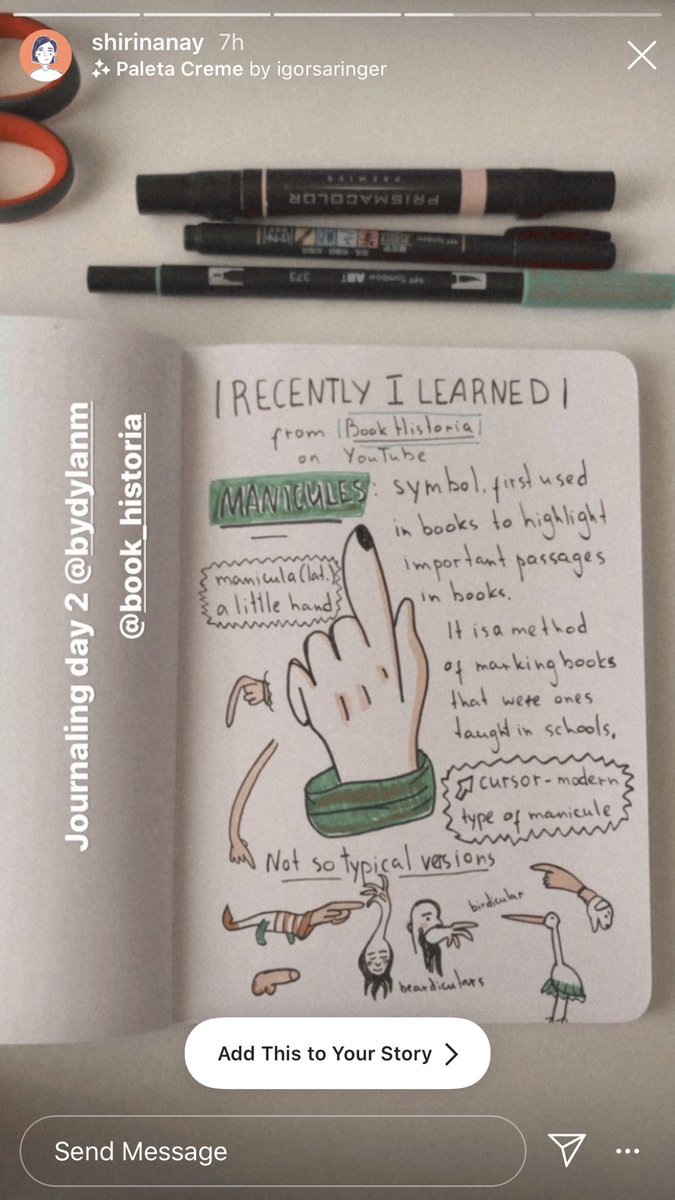 shirinanay 7h
Paleta Creme by igorsaringer
PRISMACOLOR
PREMIER
Tombow
373 ABT Tombow
Journaling day 2 @bydylanm
@book_historia
| RECENTLY I LEARNED |
from |Book Historia|
on YouTube
MANICULES: symbol, first used
in books to highlight
important passages
in books.
manicula (lat.)
a little hand
It is a method
of marking books
that were ones
taught in schools.
cursor - modern
type of manicule
Not so typical versions
birdicular
beardiculars
Add This to Your Story
Send Message